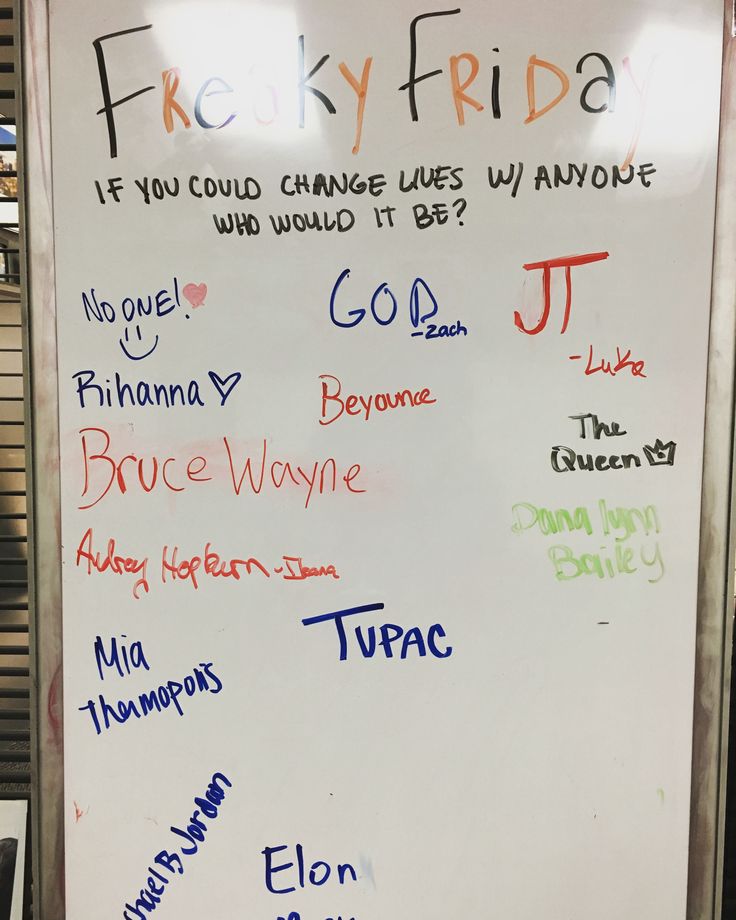 FReaky FRiDay
IF YOU COULD CHANGE LIVES W/ ANYONE
WHO WOULD IT BE?
NO ONE!
GOD
-Zach
JT
-Luke
Rihanna
Beyounce
The
Queen
Bruce Wayne
Dana lynn
Bailey
Audrey Hepburn -Ileana
TUPAC
Mia
Thermopolis
chael B Jordan
Elon